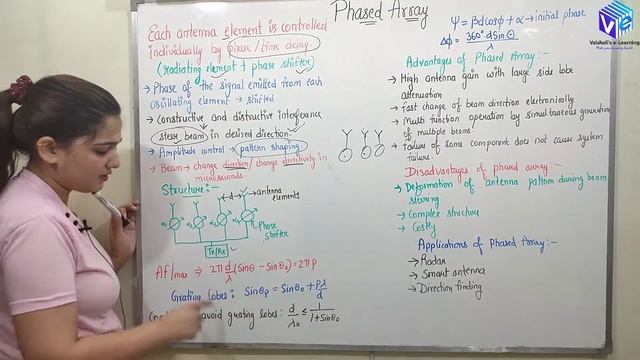 Phased Array
Each antenna element is controlled
individually by phase/time delay
(radiating element + phase shifter)
→ Phase of the signal emitted from each
oscillating element → shifted
→ constructive and distructive interference
steer beam in desired direction
→ Amplitude control → pattern shaping
→ Beam → change direction/change directivity in
microseconds
Structure:-
←d→ antenna
elements
α1 α2 α3 α4
Phase
shifter
Tx/Rx
AF/max ⇒ 2π d/λ (Sinθ - Sinθ0) = 2πp
Grating lobes: Sinθp = Sinθ0 + pλ/d
avoid grating lobes: d/λ0 ≤ 1/1+Sinθ0
Ψ = βd cosφ + α → initial phase
Δφ = 360° d Sinθ/λ
Vaishali's e-Learning
Advantages of Phased Array:-
→ High antenna gain with large side lobe
attenuation
→ fast change of beam direction electronically
→ Multi function operation by simultaneous generation
of multiple beams.
→ failure of some component does not cause system
failure.
Disadvantages of phased array:-
→ Deformation of antenna pattern during beam
steering
→ Complex structure
→ Costly
Applications of Phased Array:-
→ Radar
→ Smart antenna
→ Direction finding